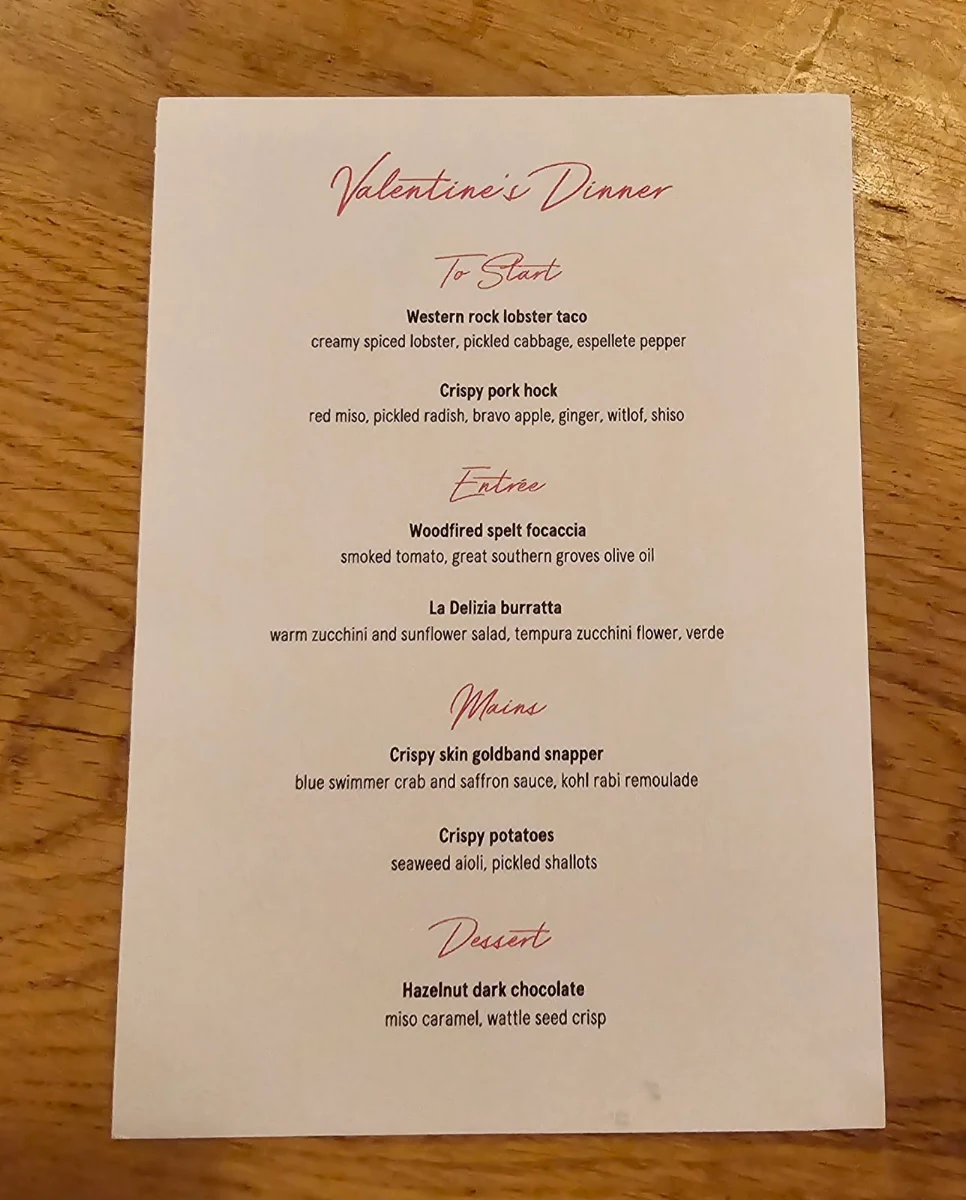 Valentine's Dinner
To Start
Western rock lobster taco
creamy spiced lobster, pickled cabbage, espellete pepper
Crispy pork hock
red miso, pickled radish, bravo apple, ginger, witlof, shiso
Entrée
Woodfired spelt focaccia
smoked tomato, great southern groves olive oil
La Delizia burratta
warm zucchini and sunflower salad, tempura zucchini flower, verde
Mains
Crispy skin goldband snapper
blue swimmer crab and saffron sauce, kohl rabi remoulade
Crispy potatoes
seaweed aioli, pickled shallots
Dessert
Hazelnut dark chocolate
miso caramel, wattle seed crisp